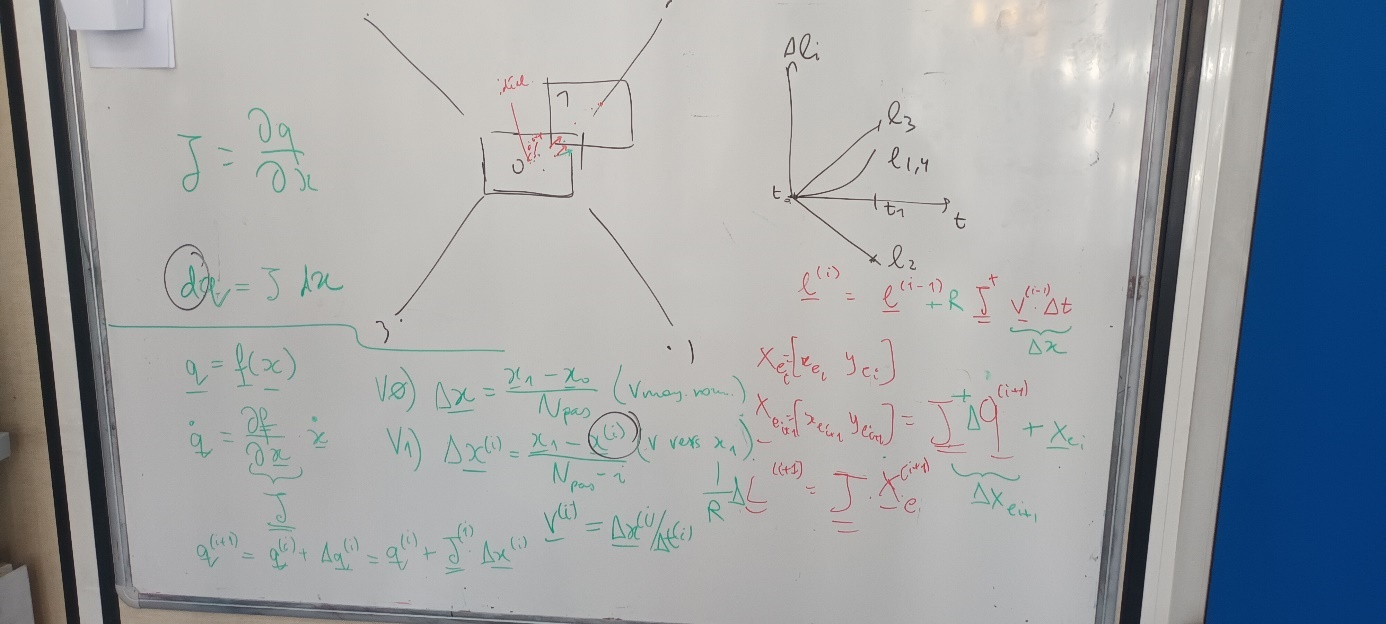 J = ∂q/∂x
dq = J dx
q = f(x)
q̇ = ∂f/∂x ẋ
J
q^(i+1) = q^(i) + Δq^(i) = q^(i) + J^(i) Δx^(i)
0
1
3
1
V0) Δx = (x1 - x0)/Npas (Vmoy. nom.)
V1) Δx^(i) = (x1 - x^(i))/(Npas - i) (V vers x1)
v^(i) = Δx^(i)/Δt^(i)
Δli
l3
l1,4
t1
t
l2
l^(i) = l^(i-1) + R J^+ v^(i-1)·Δt
Δx
Xei = [xei yei]
Xei+1 = [xei+1 yei+1] = J^+ Δq^(i+1) + Xei
ΔXei+1
1/R ΔL^(i+1) = J · Xe^(i+1)